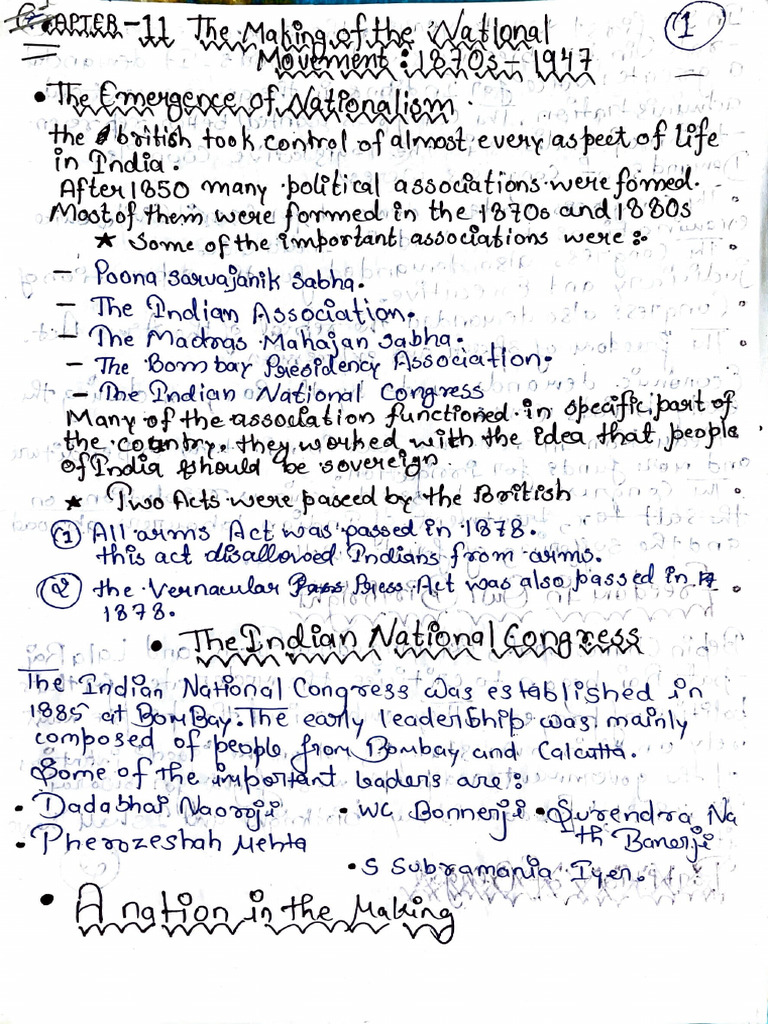 CHAPTER-11 The Making of the National
1
Movement : 1870s - 1947
• The Emergence of Nationalism.
the british took control of almost every aspect of life
in India.
After 1850 many political associations were fomed.
Most of them were formed in the 1870s and 1880s
★ Some of the important associations were :-
- Poona Sarvajanik Sabha.
- The Indian Association.
- The Madras Mahajan Sabha.
- The Bombay Presidency Association.
- The Indian National Congress
Many of the association functioned in specific part of
the country. they worked with the idea that people
of India should be sovereign.
★ Two Acts were passed by the British
① All arms Act was passed in 1878.
this act disallowed Indians from arms.
② the Vernacular Press Act was also passed in
1878.
• The Indian National Congress
The Indian National Congress was established in
1885 at BomBay. The early leadership was mainly
composed of people from Bombay and Calcutta.
Some of the important leaders are :
• Dadabhai Naoroji • WC Bonnerji • Surendra Na
th Banerji
• Pherozeshah Mehta
• S Subramania Iyer.
• A nation in the Making